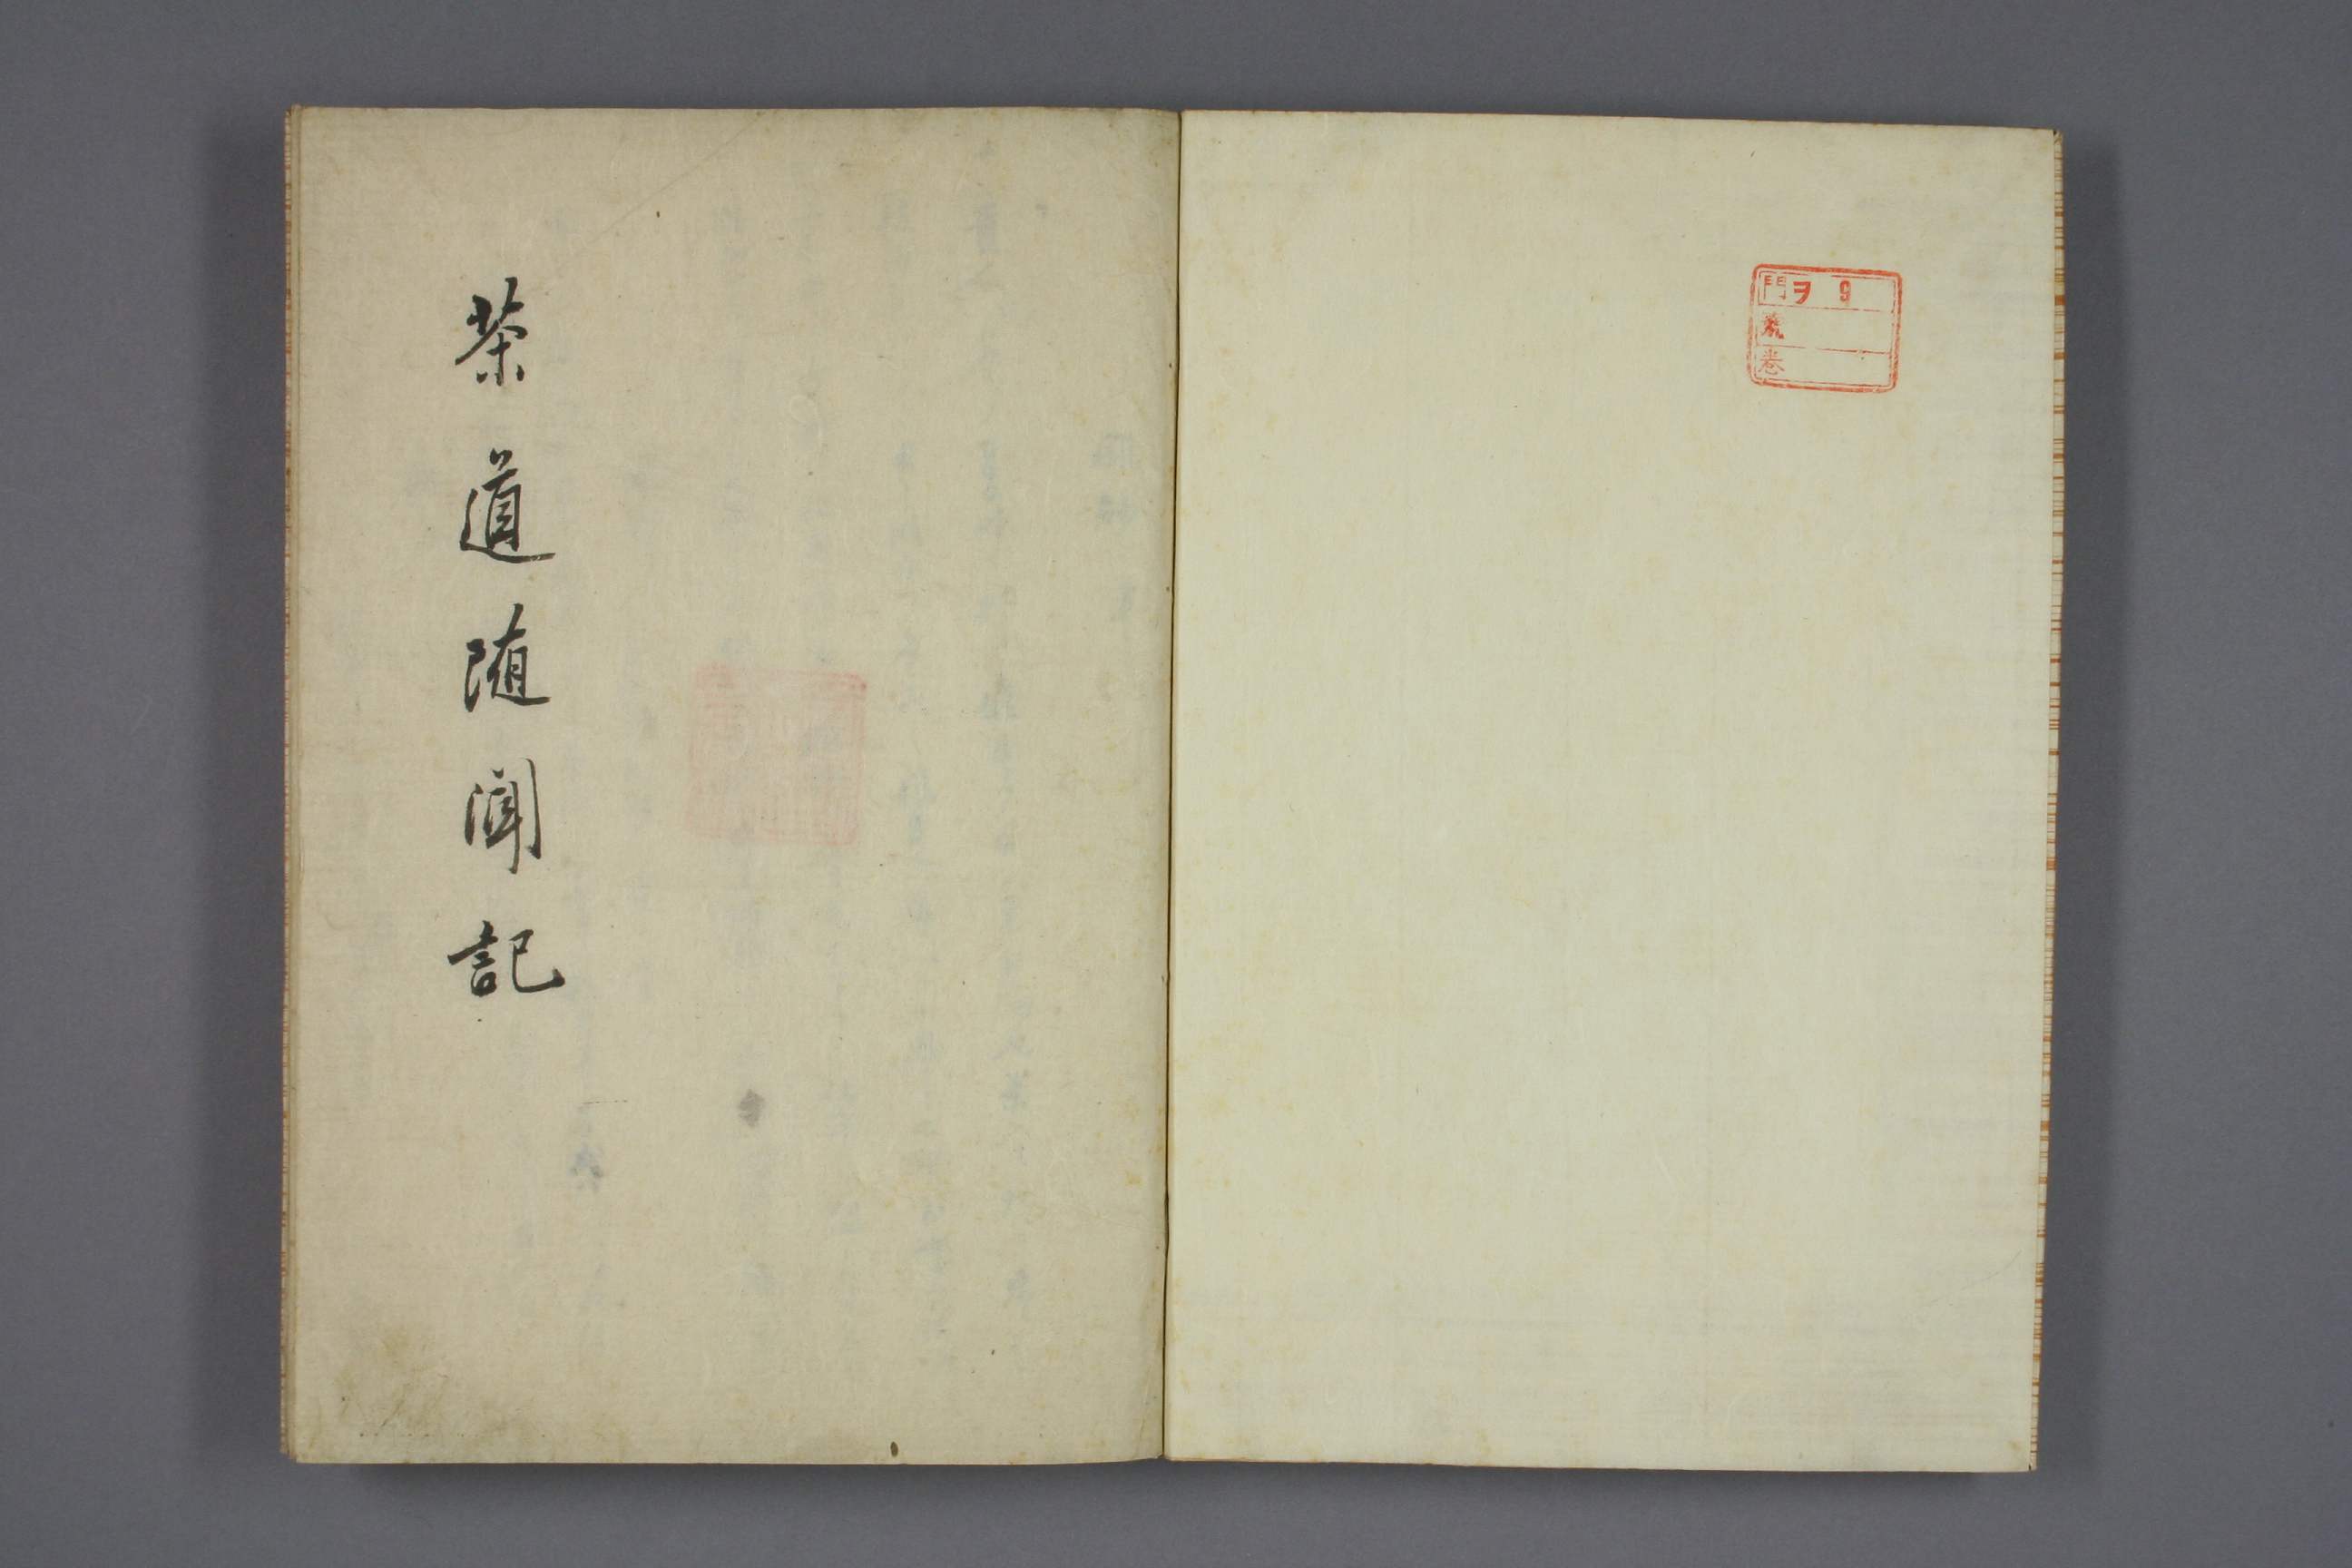 門ヲ 9
號
卷
茶道随聞記